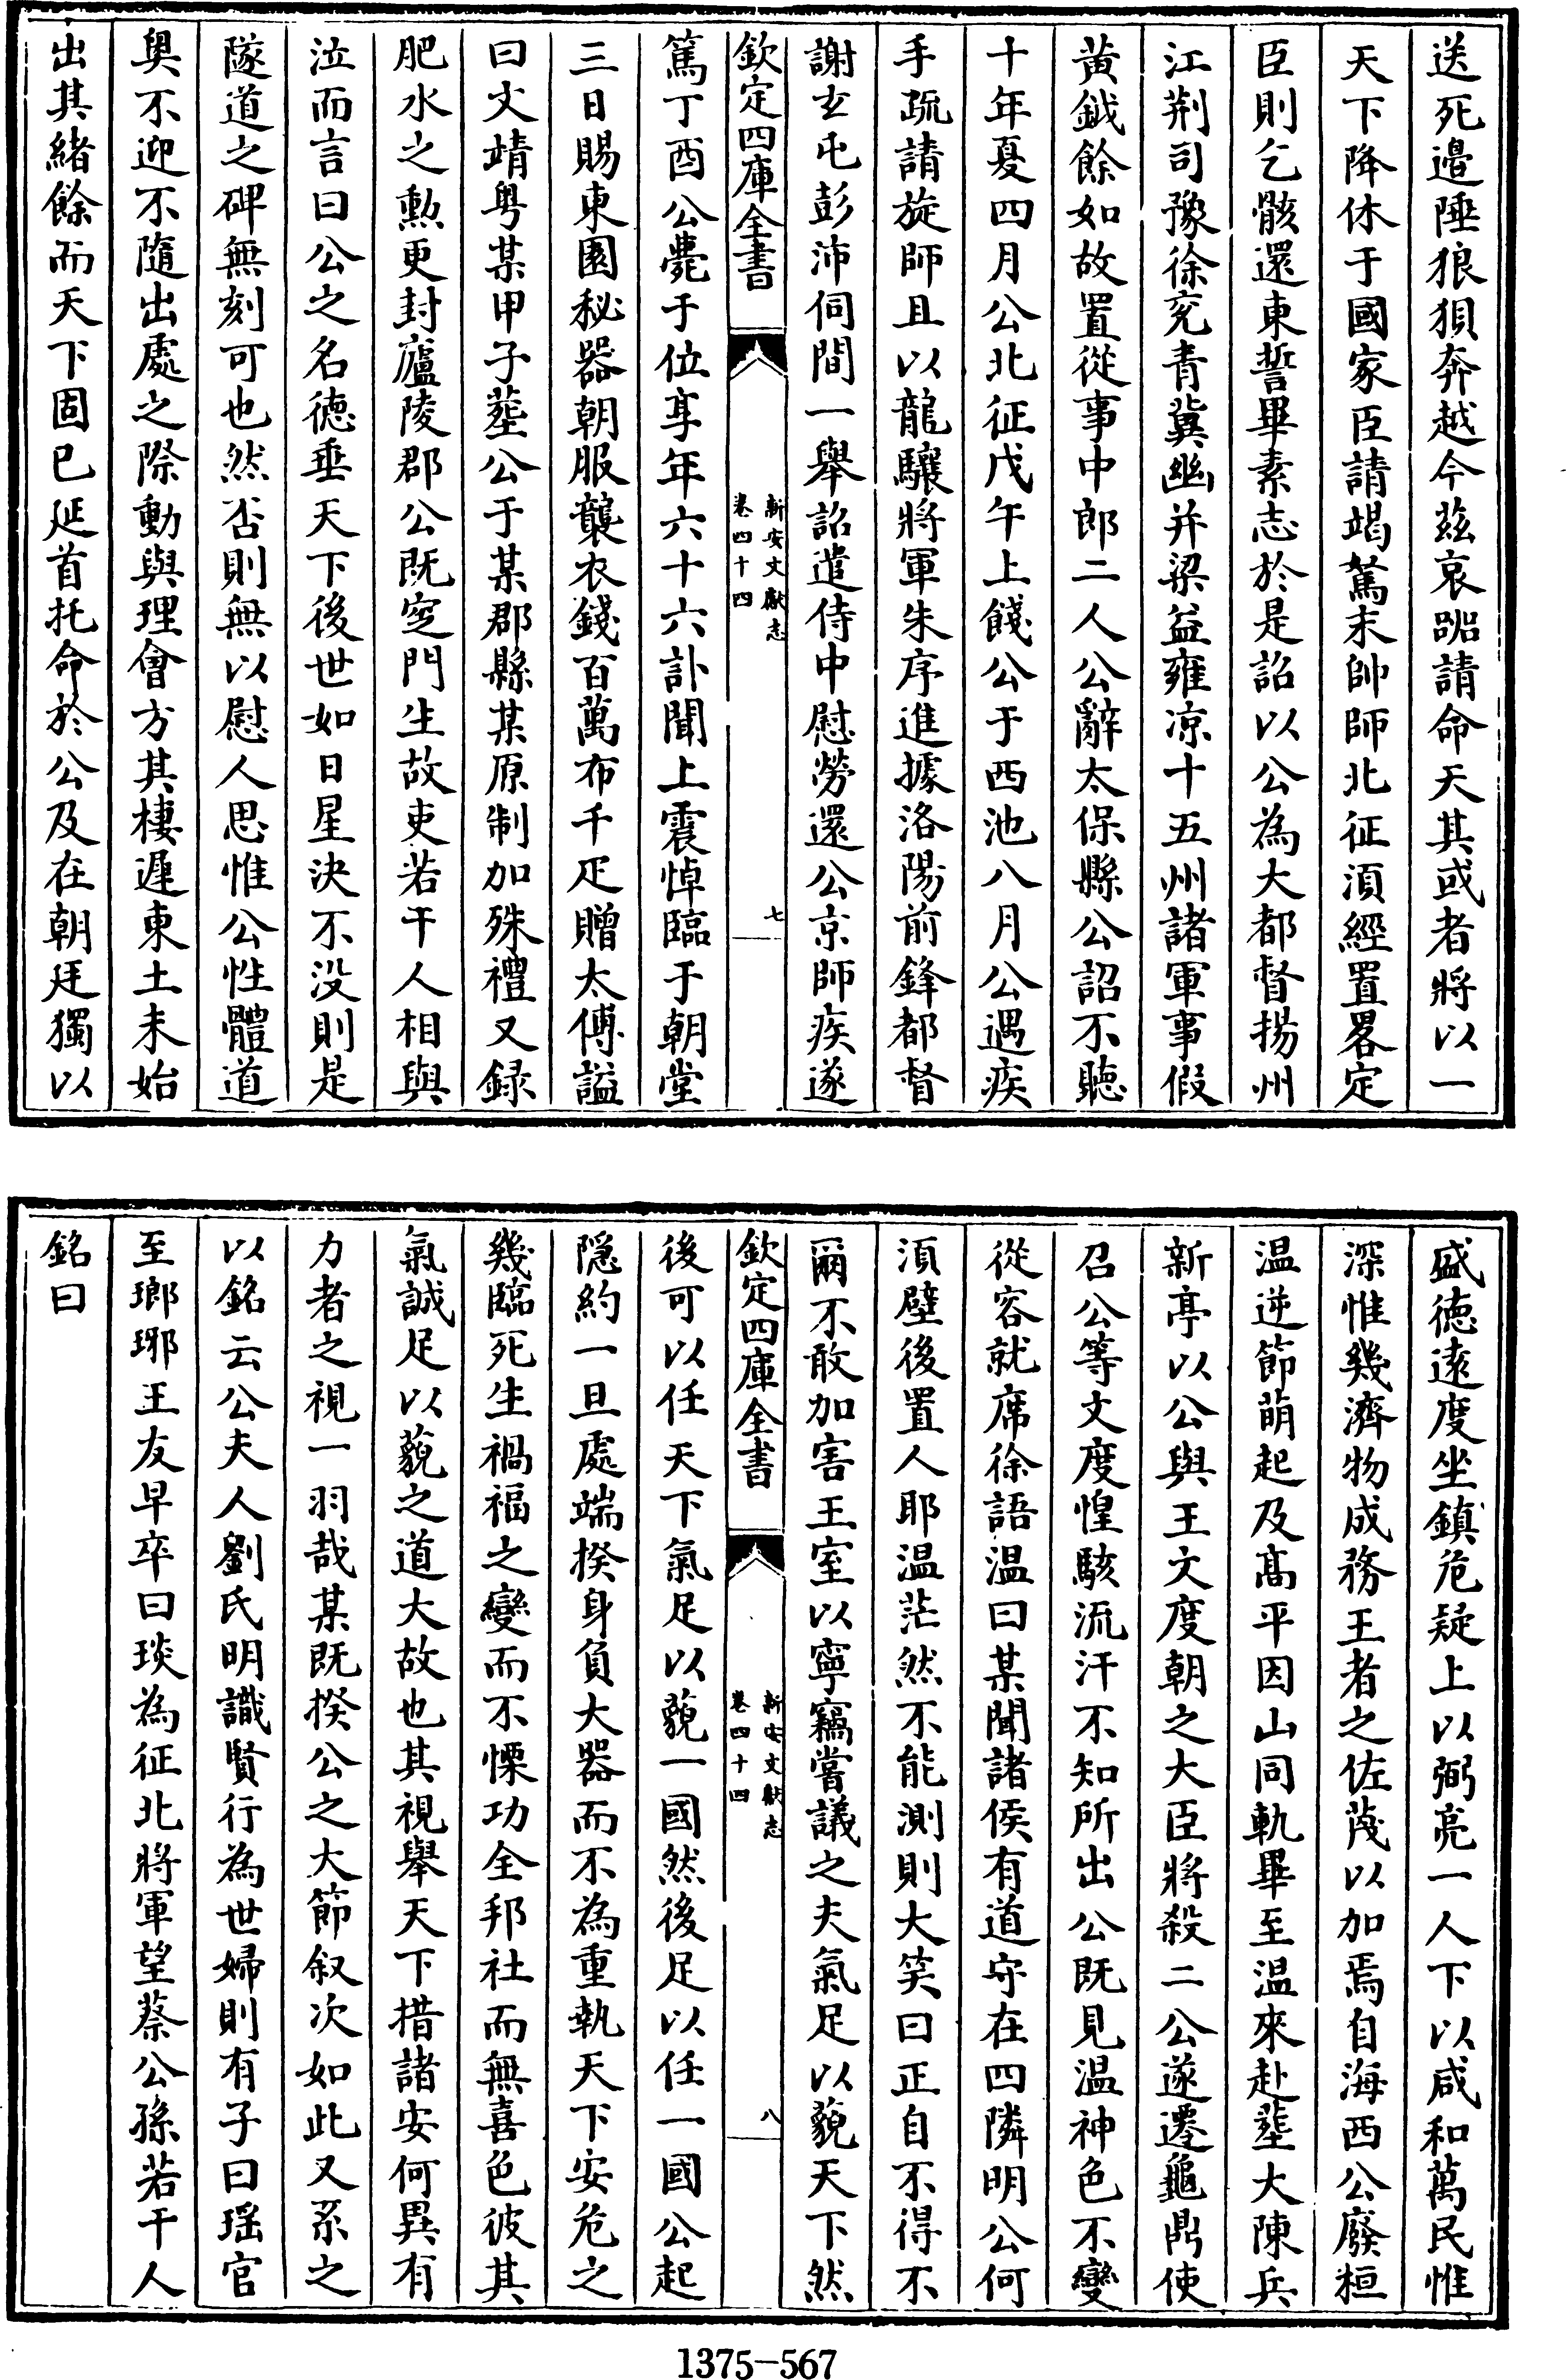 送死邉陲狼狽奔越今兹哀䛠請命天其或者將以一
天下降休于國家臣請竭駑末帥師北征湏經置畧定
臣則乞骸還東誓畢素志於是詔以公為大都督揚州
江荆司豫徐兖青冀幽并梁益雍凉十五州諸軍事假
黄鉞餘如故置從事中郎二人公辭太保縣公詔不聽
十年夏四月公北征戊午上餞公于西池八月公遇疾
手疏請旋師且以龍驤將軍朱序進據洛陽前鋒都督
謝玄屯彭沛伺間一舉詔遣侍中慰勞還公京師疾遂
欽定四庫全書
新安文獻志
卷四十四
七
篤丁酉公薨于位享年六十六訃聞上震悼臨于朝堂
三日賜東園秘器朝服襲衣錢百萬布千疋贈太傅諡
曰文靖粤某甲子塟公于某郡縣某原制加殊禮又録
肥水之勲更封廬陵郡公既窆門生故吏若干人相與
泣而言曰公之名德垂天下後世如日星決不没則是
隧道之碑無刻可也然否則無以慰人思惟公性體道
奥不迎不隨出處之際動與理會方其棲遲東土未始
出其緒餘而天下固已延首托命於公及在朝廷獨以
盛德逺度坐鎮危疑上以弼亮一人下以咸和萬民惟
深惟幾濟物成務王者之佐蔑以加焉自海西公廢桓
温逆節萌起及髙平因山同軌畢至温來赴塟大陳兵
新亭以公與王文度朝之大臣將殺二公遂遷龜鼎使
召公等文度惶駭流汗不知所出公既見温神色不變
從容就席徐語温曰某聞諸侯有道守在四隣明公何
湏壁後置人耶温茫然不能測則大笑曰正自不得不
爾不敢加害王室以寧竊嘗議之夫氣足以藐天下然
欽定四庫全書
新安文獻志
卷四十四
八
後可以任天下氣足以藐一國然後足以任一國公起
隠約一旦處端揆身負大器而不為重執天下安危之
幾臨死生禍福之變而不慄功全邦社而無喜色彼其
氣誠足以藐之道大故也其視舉天下措諸安何異有
力者之視一羽哉某既揆公之大節叙次如此又系之
以銘云公夫人劉氏明識賢行為世婦則有子曰瑶官
至瑯琊王友早卒曰琰為征北將軍望蔡公孫若干人
銘曰
1375-567